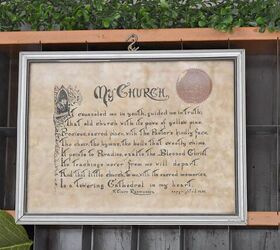 My Church.
It counseled me in youth, guided me in truth;
that old church with its pews of yellow pine.
Precious, sacred place, with the Pastor's kindly face,
the choir, the hymns, the bells that sweetly chime.
It points to Paradise, exalts the Blessed Christ.
Its teachings never from me will depart.
And this little church to me, with its sacred memories,
Is a towering Cathedral in my heart.